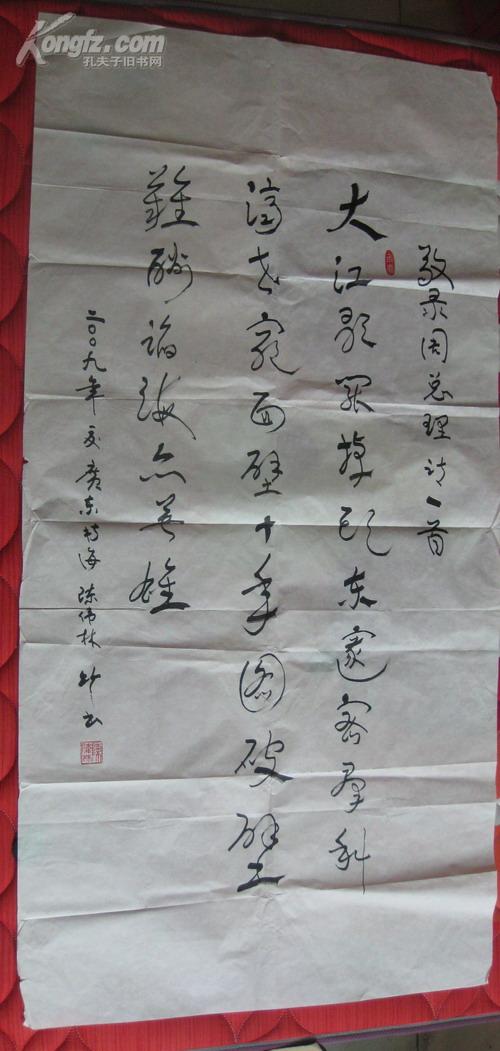 Kongfz.com
孔夫子旧书网
敬录周总理诗一首
大江歌罢掉头东邃密群科
济世穷面壁十年图破壁
難酬蹈海亦英雄
二〇〇九年夏廣东珠海陈伟林书